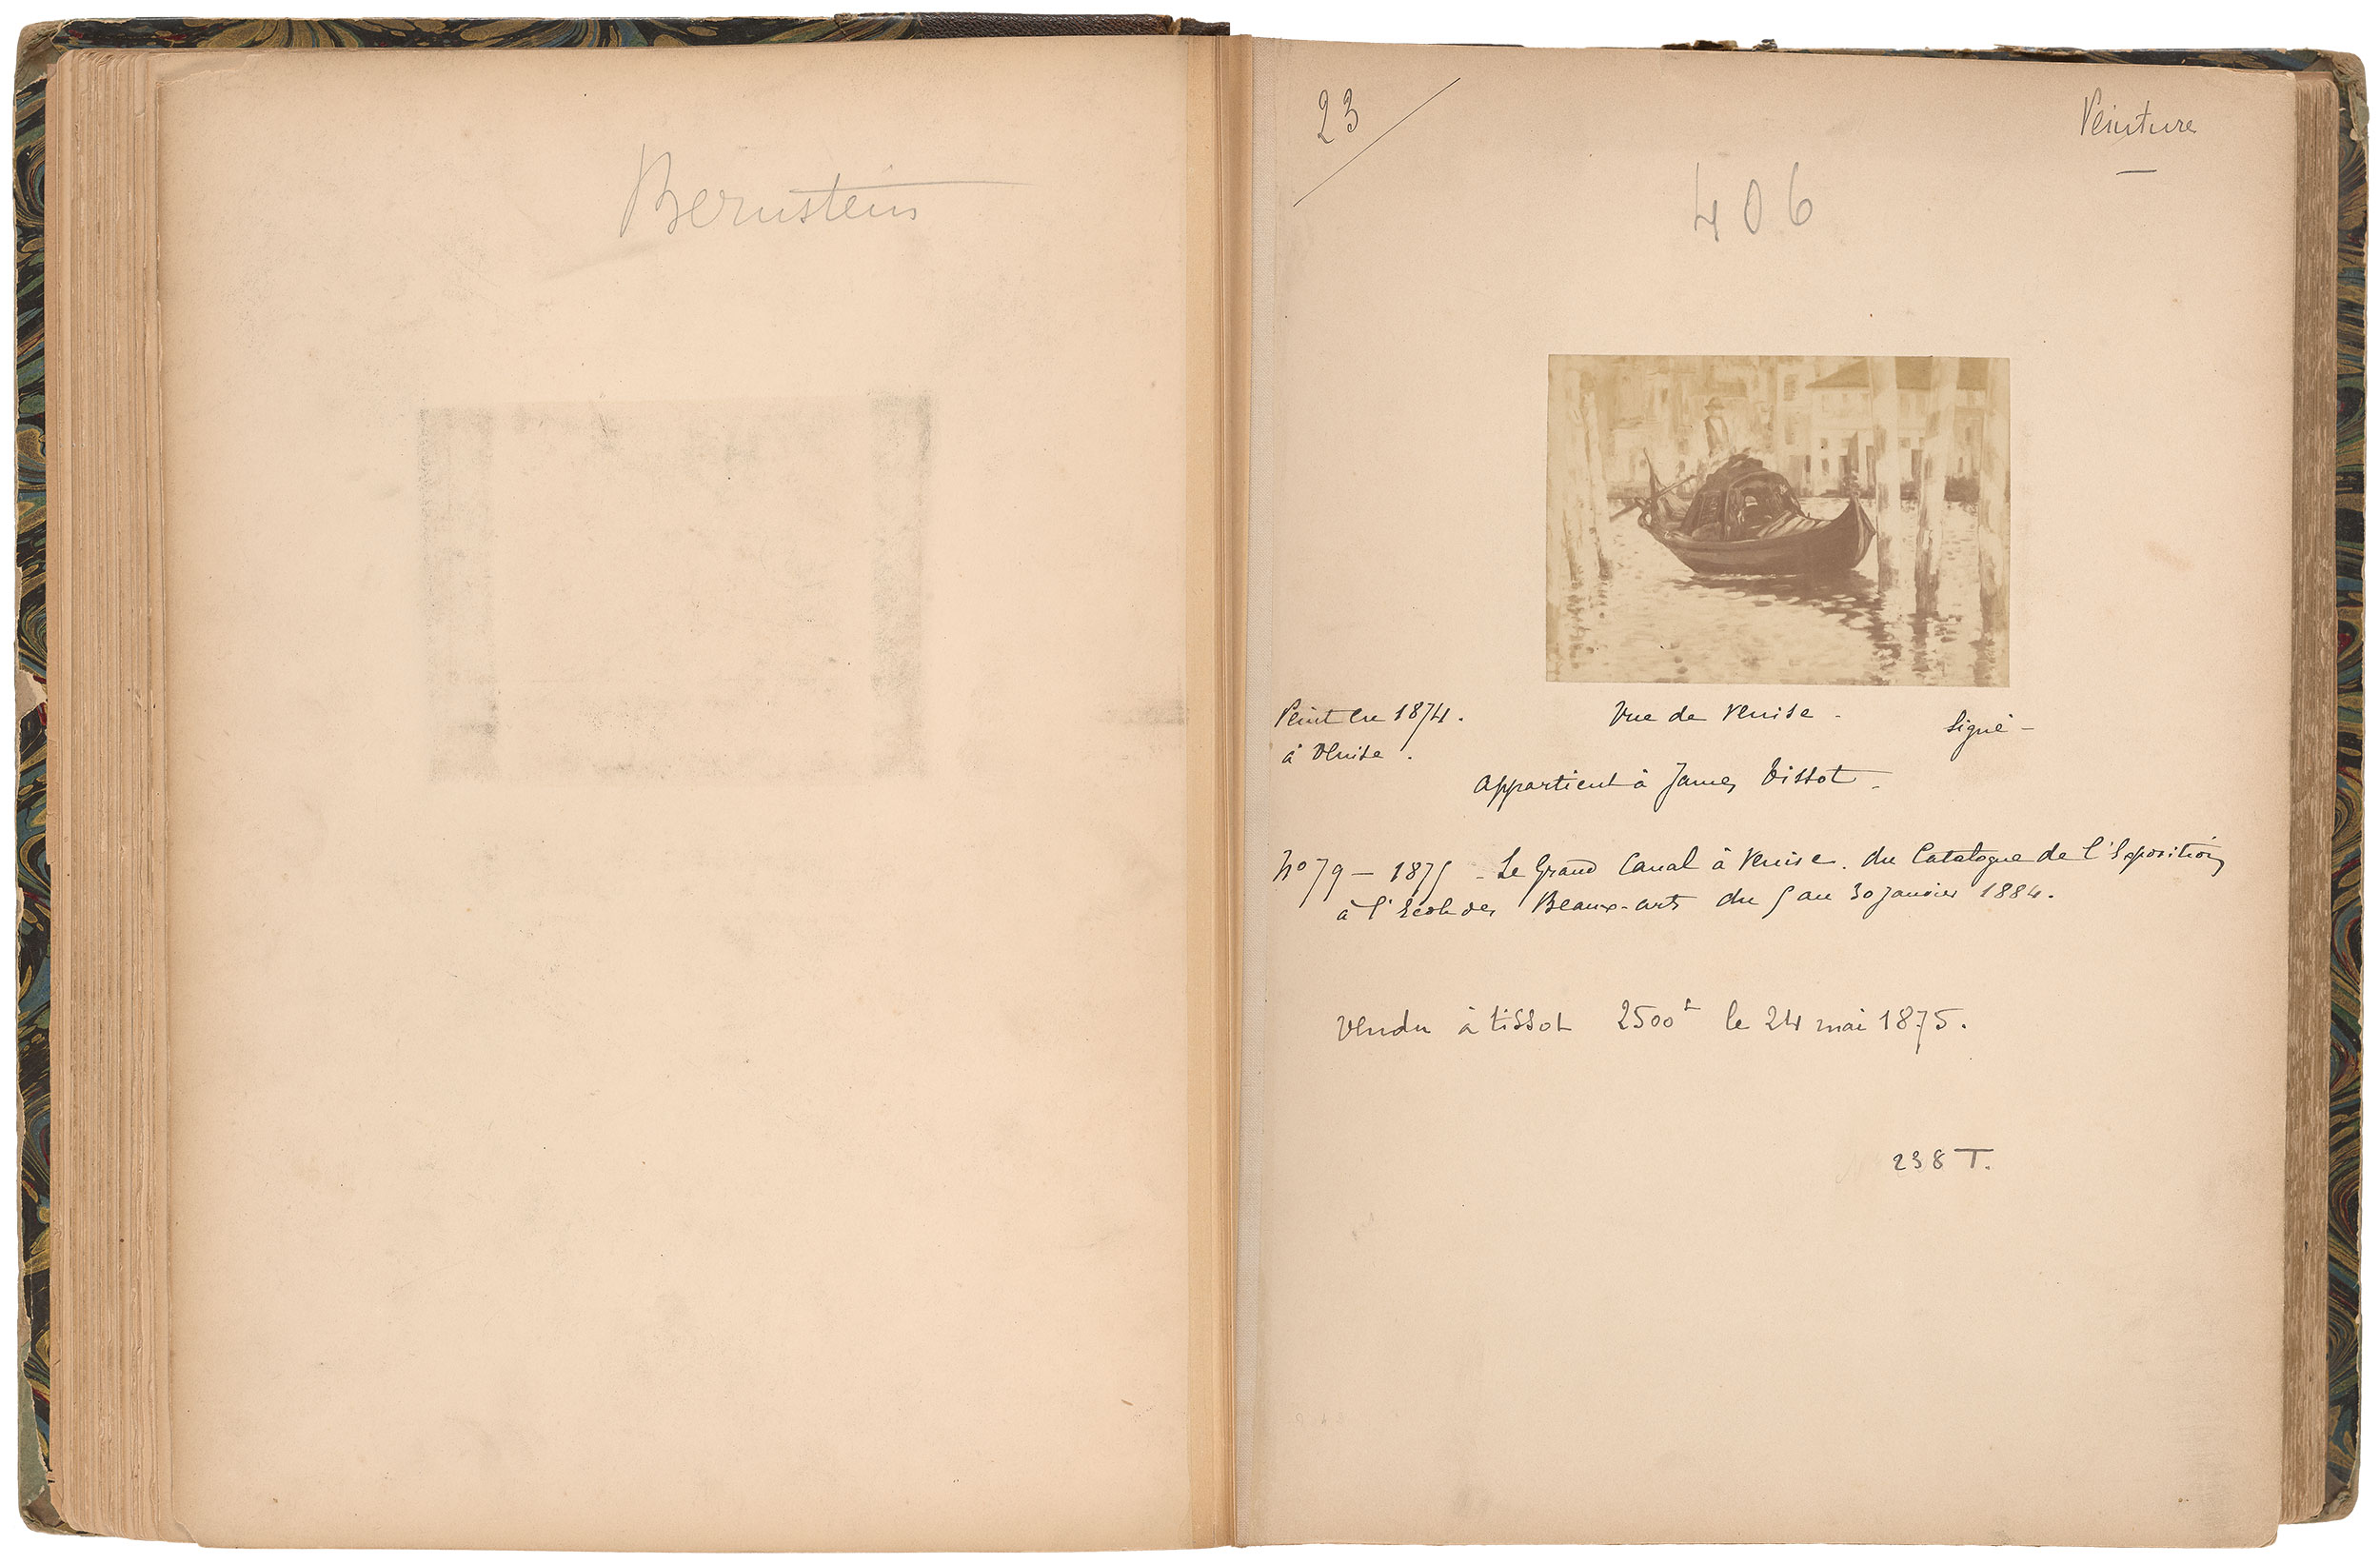 Bernstein
23
Peinture
406
Peint en 1874.
à Venise.
Vue de Venise -
Signé -
appartient à James Tissot -
No 79 - 1875 - Le Grand Canal à Venise. du Catalogue de l'Exposition
à l'École des Beaux-arts du 5 au 30 Janvier 1884.
Vendu à tissot 2500f le 24 mai 1875.
238 T.